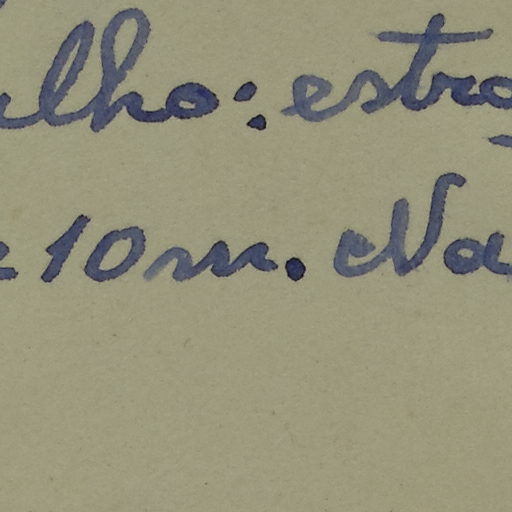 lho: estra
10 m. Na